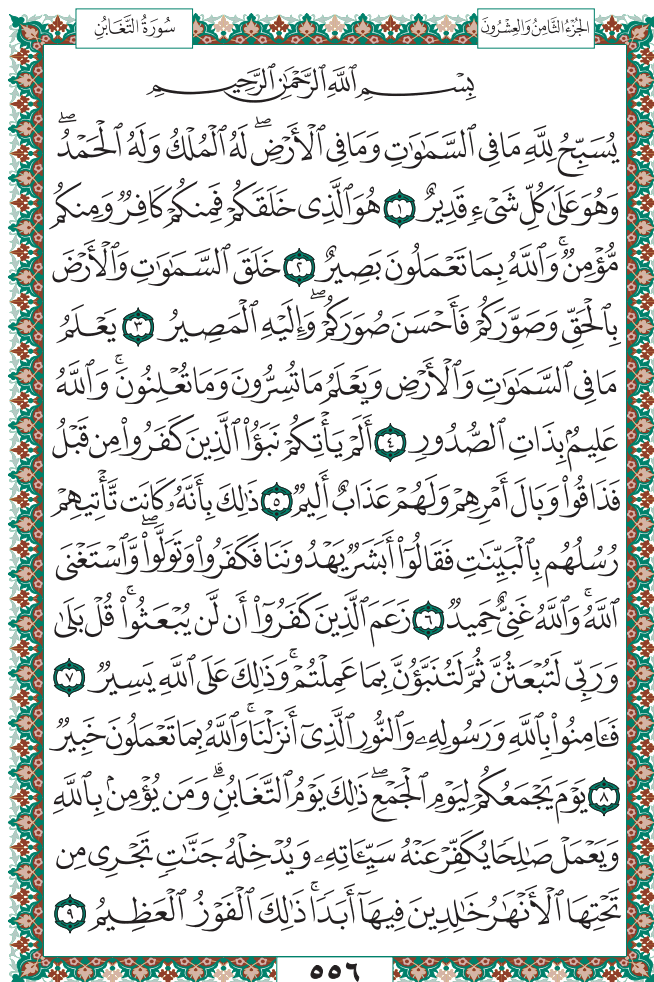 الجُزْءُ الثَّامِنُ وَالعِشْرُونَ
سُورَةُ التَّغَابُنِ
بِسْمِ ٱللَّهِ ٱلرَّحْمَٰنِ ٱلرَّحِيمِ
يُسَبِّحُ لِلَّهِ مَا فِي ٱلسَّمَٰوَٰتِ وَمَا فِي ٱلْأَرْضِۖ لَهُ ٱلْمُلْكُ وَلَهُ ٱلْحَمْدُۖ
وَهُوَ عَلَىٰ كُلِّ شَيْءٍ قَدِيرٌ ١ هُوَ ٱلَّذِي خَلَقَكُمْ فَمِنكُمْ كَافِرٌ وَمِنكُم
مُّؤْمِنٌۚ وَٱللَّهُ بِمَا تَعْمَلُونَ بَصِيرٌ ٢ خَلَقَ ٱلسَّمَٰوَٰتِ وَٱلْأَرْضَ
بِٱلْحَقِّ وَصَوَّرَكُمْ فَأَحْسَنَ صُوَرَكُمْۖ وَإِلَيْهِ ٱلْمَصِيرُ ٣ يَعْلَمُ
مَا فِي ٱلسَّمَٰوَٰتِ وَٱلْأَرْضِ وَيَعْلَمُ مَا تُسِرُّونَ وَمَا تُعْلِنُونَۚ وَٱللَّهُ
عَلِيمٌۢ بِذَاتِ ٱلصُّدُورِ ٤ أَلَمْ يَأْتِكُمْ نَبَؤُا۟ ٱلَّذِينَ كَفَرُوا۟ مِن قَبْلُ
فَذَاقُوا۟ وَبَالَ أَمْرِهِمْ وَلَهُمْ عَذَابٌ أَلِيمٌ ٥ ذَٰلِكَ بِأَنَّهُۥ كَانَت تَّأْتِيهِمْ
رُسُلُهُم بِٱلْبَيِّنَٰتِ فَقَالُوٓا۟ أَبَشَرٌ يَهْدُونَنَا فَكَفَرُوا۟ وَتَوَلَّوا۟ۖ وَّٱسْتَغْنَى
ٱللَّهُۚ وَٱللَّهُ غَنِيٌّ حَمِيدٌ ٦ زَعَمَ ٱلَّذِينَ كَفَرُوٓا۟ أَن لَّن يُبْعَثُوا۟ۚ قُلْ بَلَىٰ
وَرَبِّي لَتُبْعَثُنَّ ثُمَّ لَتُنَبَّؤُنَّ بِمَا عَمِلْتُمْۚ وَذَٰلِكَ عَلَى ٱللَّهِ يَسِيرٌ ٧
فَـَٔامِنُوا۟ بِٱللَّهِ وَرَسُولِهِۦ وَٱلنُّورِ ٱلَّذِيٓ أَنزَلْنَاۚ وَٱللَّهُ بِمَا تَعْمَلُونَ خَبِيرٌ
٨ يَوْمَ يَجْمَعُكُمْ لِيَوْمِ ٱلْجَمْعِۖ ذَٰلِكَ يَوْمُ ٱلتَّغَابُنِۗ وَمَن يُؤْمِنۢ بِٱللَّهِ
وَيَعْمَلْ صَٰلِحًا يُكَفِّرْ عَنْهُ سَيِّـَٔاتِهِۦ وَيُدْخِلْهُ جَنَّٰتٍ تَجْرِي مِن
تَحْتِهَا ٱلْأَنْهَٰرُ خَٰلِدِينَ فِيهَآ أَبَدًاۚ ذَٰلِكَ ٱلْفَوْزُ ٱلْعَظِيمُ ٩
٥٥٦